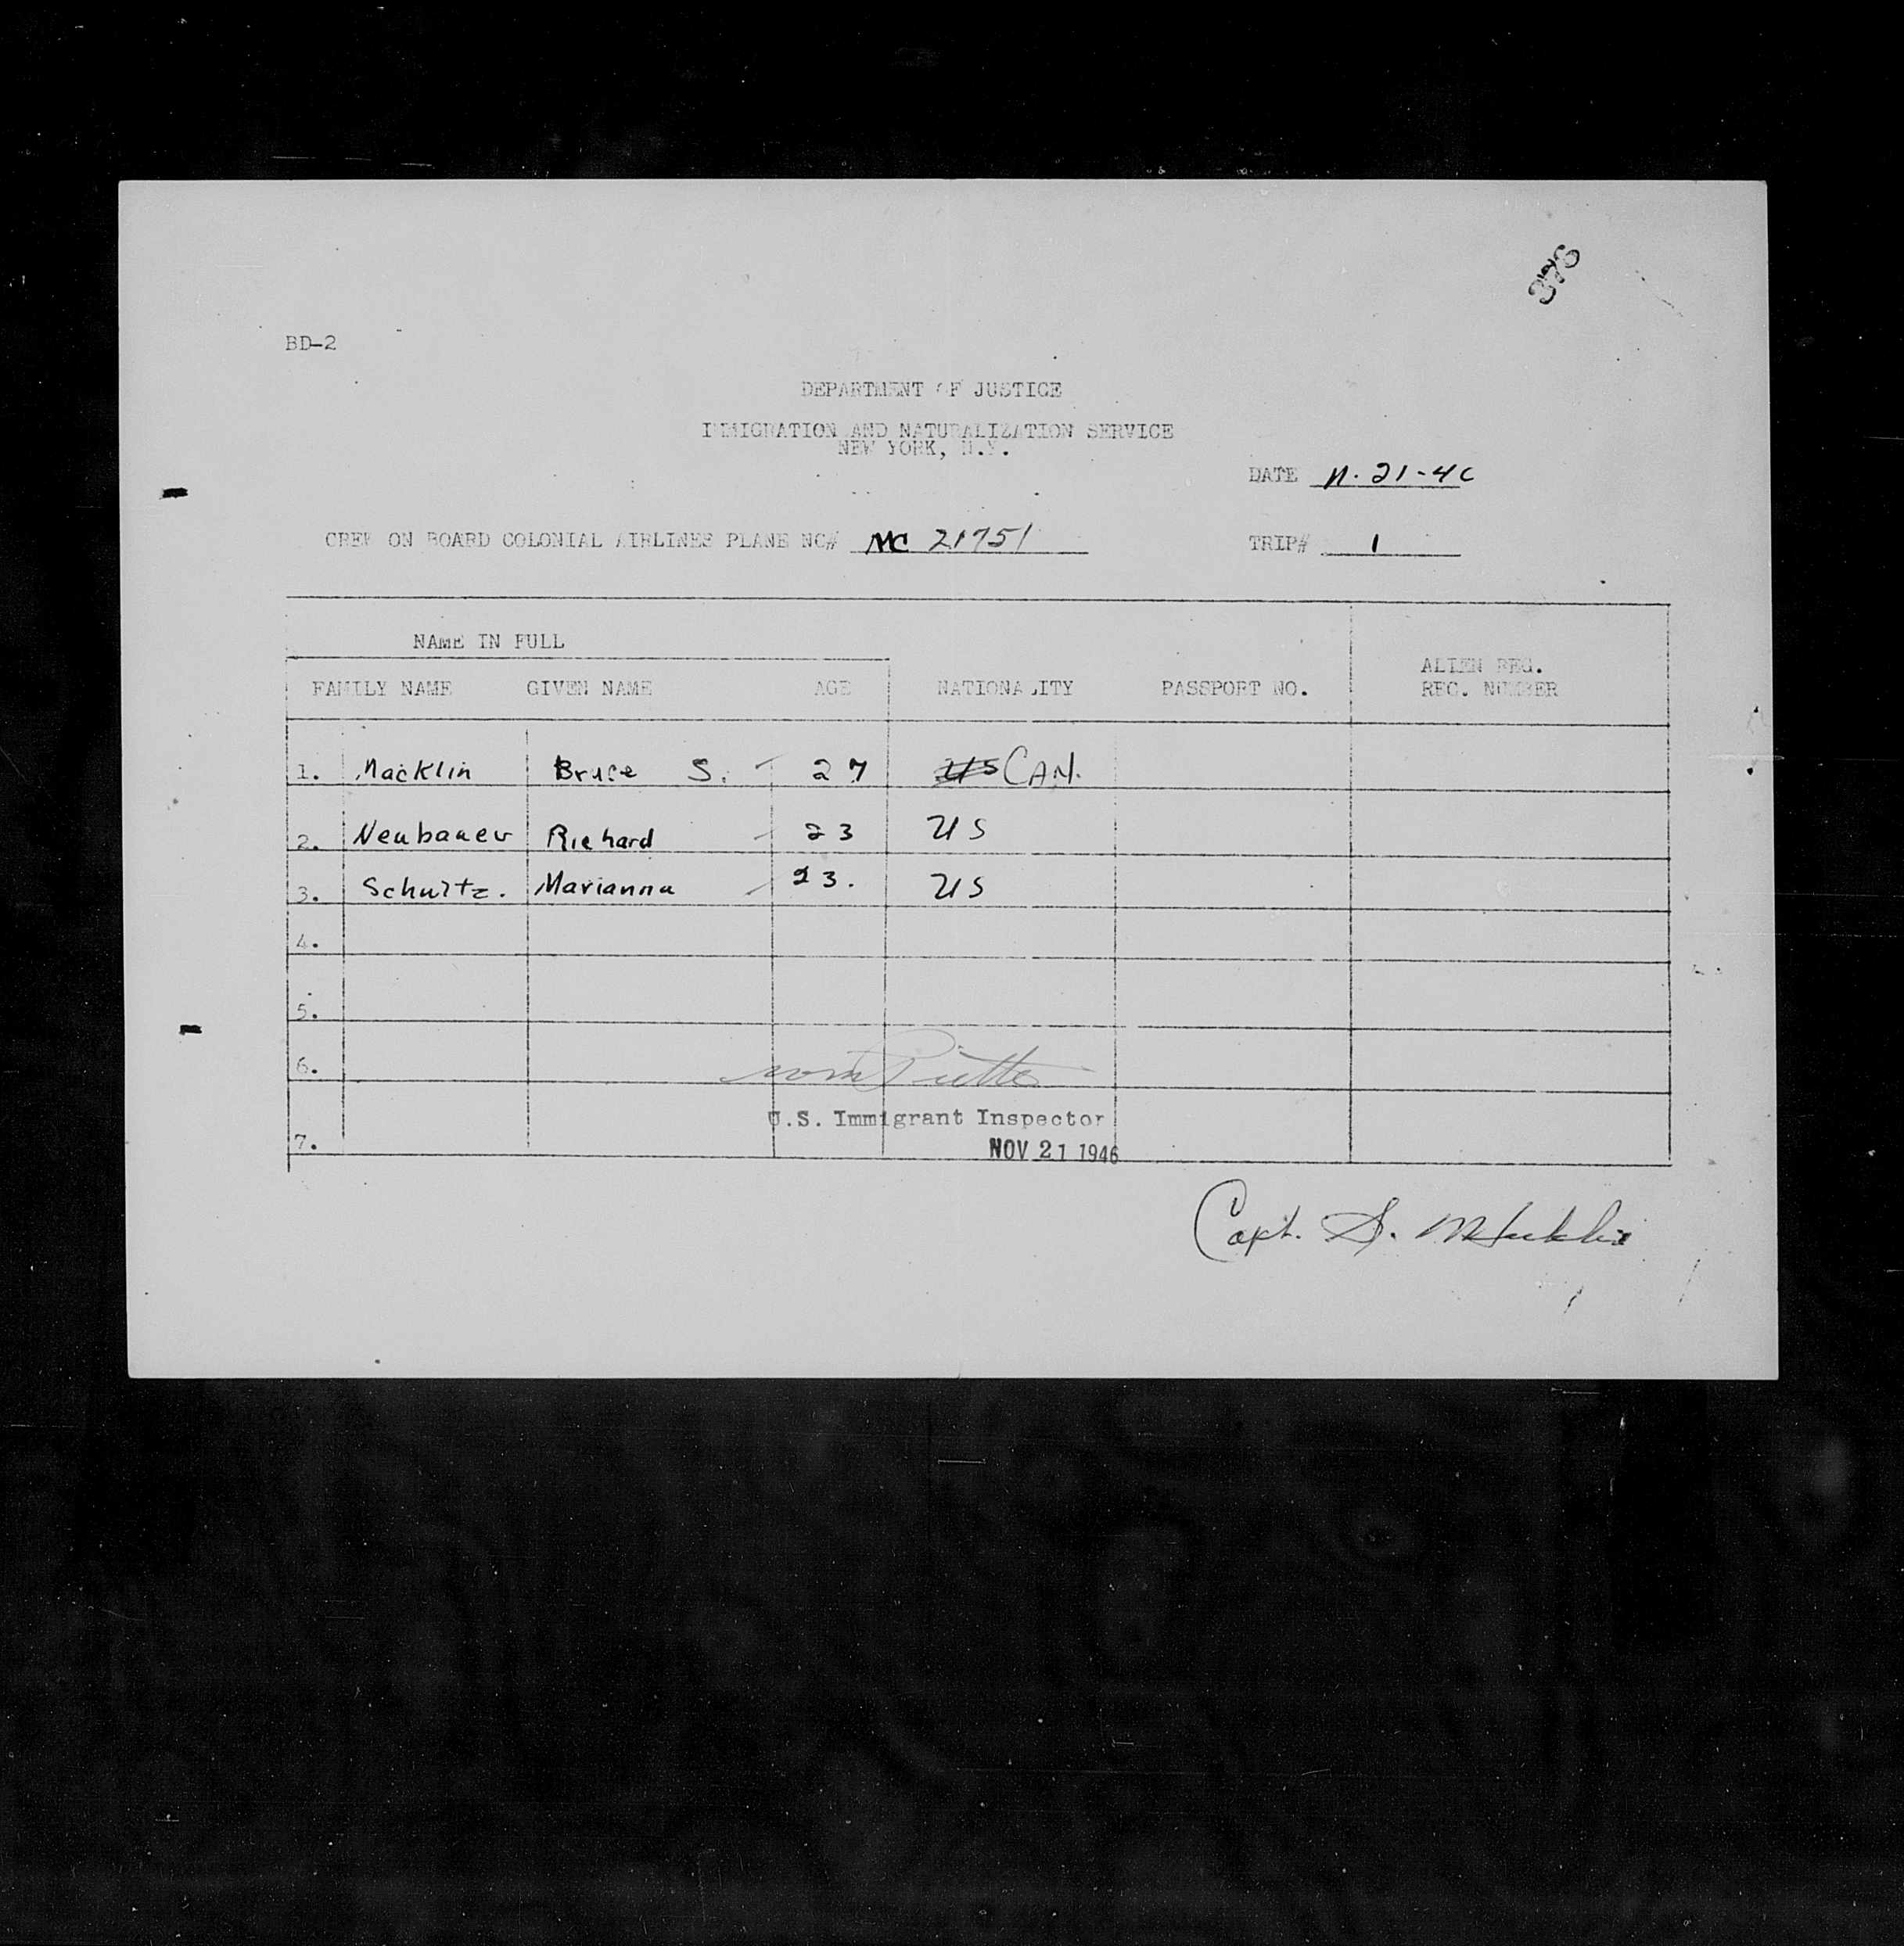 376
BD-2
DEPARTMENT OF JUSTICE
IMMIGRATION AND NATURALIZATION SERVICE
NEW YORK, N.Y.
DATE 11-21-46
CREW ON BOARD COLONIAL AIRLINES PLANE NC# NC 21751
TRIP# 1
NAME IN FULL
FAMILY NAME GIVEN NAME AGE NATIONALITY PASSPORT NO. ALIEN REG.
REC. NUMBER
1. Macklin Bruce S. - 27 US CAN.
2. Neubauer Richard - 23 US
3. Schultz. Marianna - 23. US
4.
5.
6.
U.S. Immigrant Inspector
7.
NOV 21 1946
Capt. S. Macklin